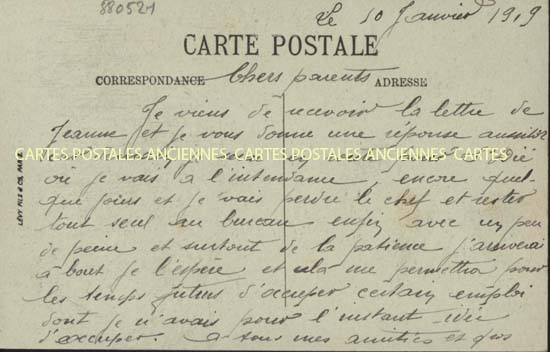 880521
Le 10 Janvier 1919
CARTE POSTALE
CORRESPONDANCE Chers parents ADRESSE
Je viens de recevoir la lettre de
Jeanne et je vous donne une réponse aussitôt
CARTES POSTALES ANCIENNES CARTES POSTALES ANCIENNES CARTES
où je vais à l'intendance, encore quel-
que jours et je vais perdre le chef et rester
tout seul au bureau enfin avec un peu
de peine et surtout de la patience j'arriverai
à bout je l'espère et cela me permettra pour
les temps futurs d'occuper certain emploi
dont je n'avais pour l'instant idée
d'occuper. à tous mes amitiés et gros
LÉVY FILS & Cie, PARIS